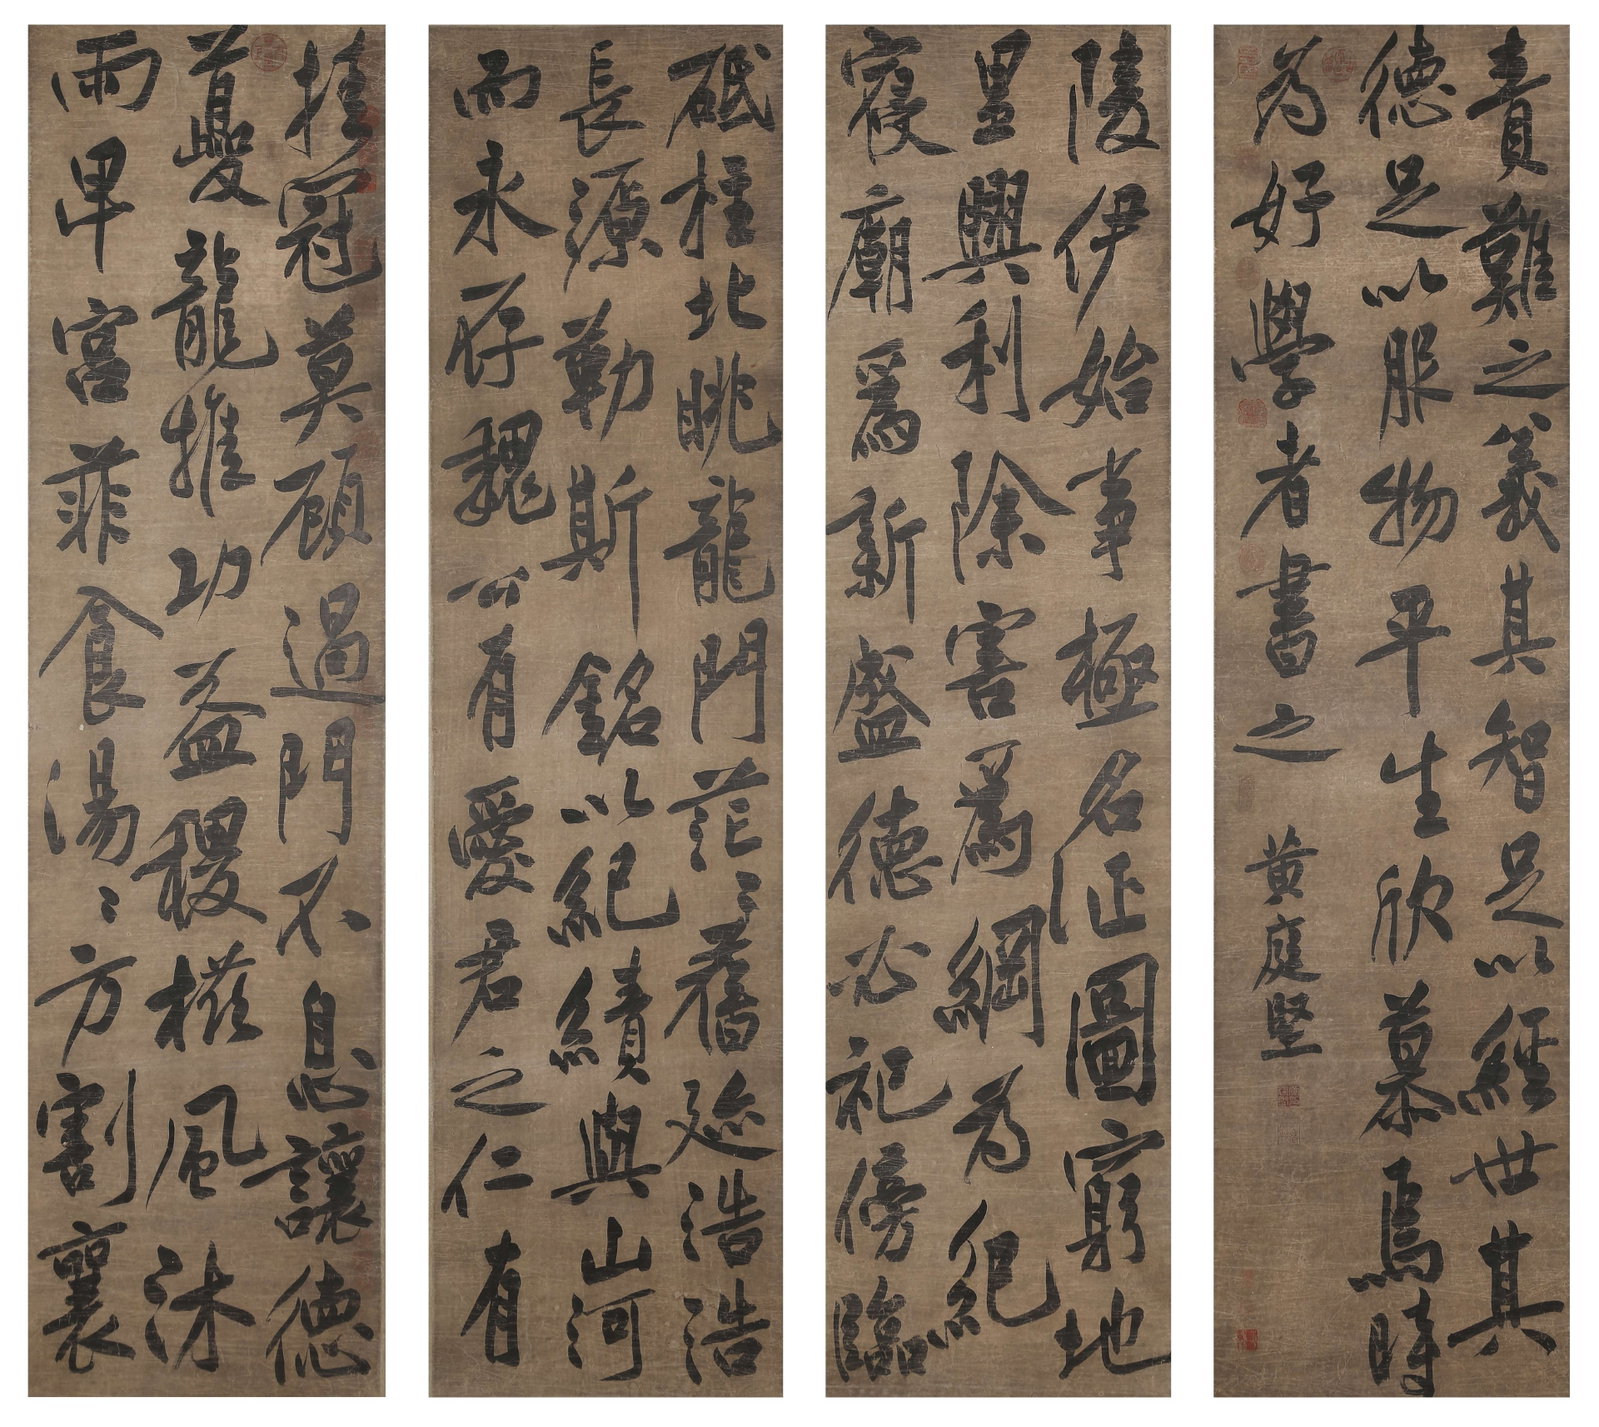 挂冠莫顧過門不息讓德
夔龍推功益稷櫛風沐
雨卑宮菲食湯〻方割襄
陵伊始事極名正圖窮地
里興利除害爲綱为紀
寢廟爲新盛德必祀傍臨
砥柱北眺龍門茫〻舊迹浩浩
長源勒斯銘以紀績與山河
而永存魏公有愛君之仁有
責難之義其智足以經世其
德足以服物平生欣慕焉時
为好學者書之 黄庭堅